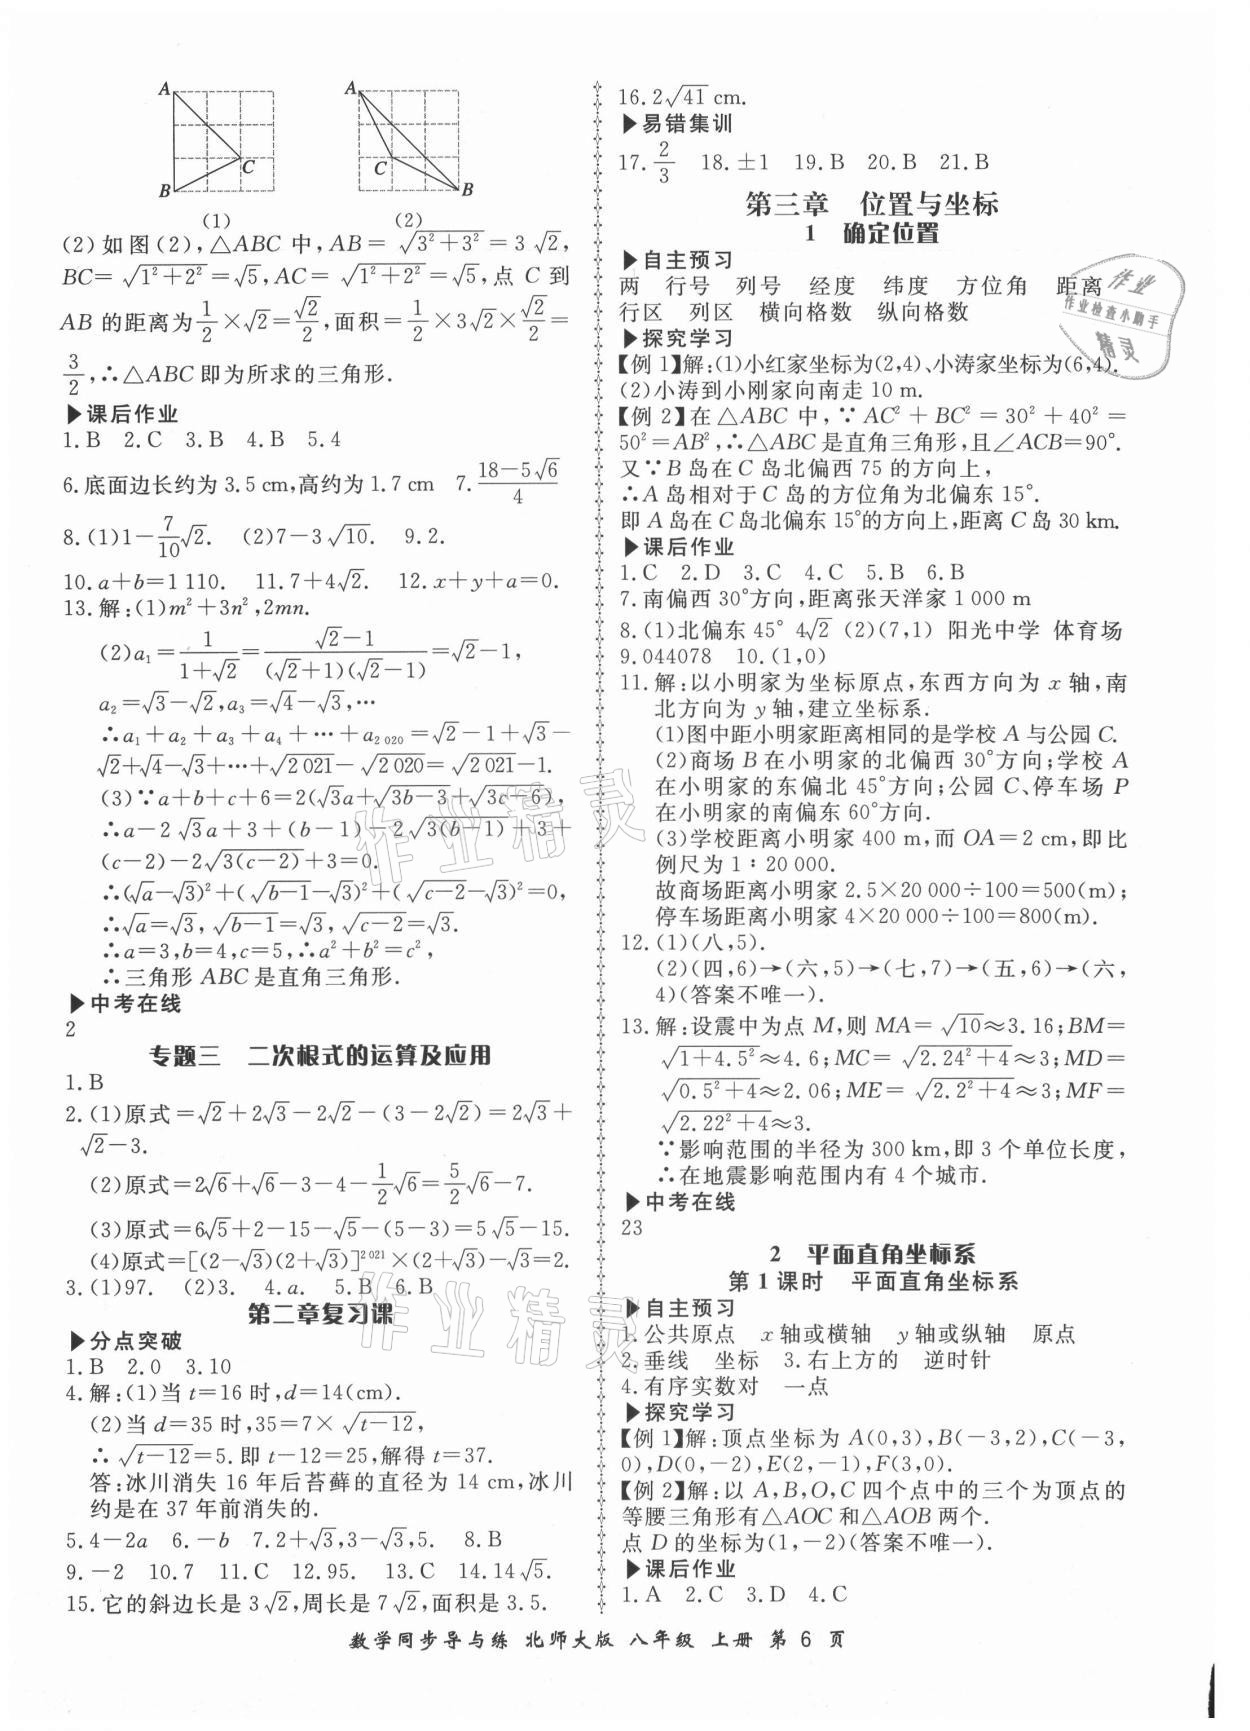 A
C
B
A
C
B
(1)
(2)
(2)如图(2),△ABC 中,AB=√(3²+3²)=3√2,
BC=√(1²+2²)=√5,AC=√(1²+2²)=√5,点 C 到
AB 的距离为1/2×√2=√2/2,面积=1/2×3√2×√2/2=
3/2,∴△ABC 即为所求的三角形.
▶课后作业
1.B 2.C 3.B 4.B 5.4
6.底面边长约为 3.5 cm,高约为 1.7 cm 7.(18-5√6)/4
8.(1)1-7/10√2. (2)7-3√10. 9.2.
10.a+b=1 110. 11.7+4√2. 12.x+y+a=0.
13.解:(1)m²+3n²,2mn.
(2)a₁=1/(1+√2)=(√2-1)/((√2+1)(√2-1))=√2-1,
a₂=√3-√2,a₃=√4-√3,…
∴a₁+a₂+a₃+a₄+…+a₂₀₂₀=√2-1+√3-
√2+√4-√3+…+√2 021-√2 020=√2 021-1.
(3)∵a+b+c+6=2(√3a+√(3b-3)+√(3c-6)),
∴a-2√3a+3+(b-1) 2√(3(b-1))+3+
(c-2)-2√(3(c-2))+3=0.
∴(√a-√3)²+(√(b-1)-√3)²+(√(c-2)-√3)²=0,
∴√a=√3,√(b-1)=√3,√(c-2)=√3.
∴a=3,b=4,c=5,∴a²+b²=c²,
∴三角形 ABC 是直角三角形.
▶中考在线
2
专题三 二次根式的运算及应用
1.B
2.(1)原式=√2+2√3-2√2-(3-2√2)=2√3+
√2-3.
(2)原式=2√6+√6-3-4-1/2√6=5/2√6-7.
(3)原式=6√5+2-15-√5-(5-3)=5√5-15.
(4)原式=[(2-√3)(2+√3)]²⁰²¹×(2+√3)-√3=2.
3.(1)97. (2)3. 4.a. 5.B 6.B
第二章复习课
▶分点突破
1.B 2.0 3.10
4.解:(1)当 t=16 时,d=14(cm).
(2)当 d=35 时,35=7×√(t-12),
∴√(t-12)=5.即 t-12=25,解得 t=37.
答:冰川消失 16 年后苔藓的直径为 14 cm,冰川
约是在 37 年前消失的.
5.4-2a 6.-b 7.2+√3,3-√3,5. 8.B
9.-2 10.7 11.C 12.95. 13.C 14.14√5.
15.它的斜边长是 3√2,周长是 7√2,面积是 3.5.
16.2√41 cm.
▶易错集训
17.2/3 18.±1 19.B 20.B 21.B
第三章 位置与坐标
1 确定位置
▶自主预习
两 行号 列号 经度 纬度 方位角 距离
行区 列区 横向格数 纵向格数
▶探究学习
【例 1】解:(1)小红家坐标为(2,4)、小涛家坐标为(6,4).
(2)小涛到小刚家向南走 10 m.
【例 2】在△ABC 中,∵AC²+BC²=30²+40²=
50²=AB²,∴△ABC 是直角三角形,且∠ACB=90°.
又∵B 岛在 C 岛北偏西 75 的方向上,
∴A 岛相对于 C 岛的方位角为北偏东 15°.
即 A 岛在 C 岛北偏东 15°的方向上,距离 C 岛 30 km.
▶课后作业
1.C 2.D 3.C 4.C 5.B 6.B
7.南偏西 30°方向,距离张天洋家 1 000 m
8.(1)北偏东 45° 4√2 (2)(7,1) 阳光中学 体育场
9.044078 10.(1,0)
11.解:以小明家为坐标原点,东西方向为 x 轴,南
北方向为 y 轴,建立坐标系.
(1)图中距小明家距离相同的是学校 A 与公园 C.
(2)商场 B 在小明家的北偏西 30°方向;学校 A
在小明家的东偏北 45°方向;公园 C、停车场 P
在小明家的南偏东 60°方向.
(3)学校距离小明家 400 m,而 OA=2 cm,即比
例尺为 1∶20 000.
故商场距离小明家 2.5×20 000÷100=500(m);
停车场距离小明家 4×20 000÷100=800(m).
12.(1)(八,5).
(2)(四,6)→(六,5)→(七,7)→(五,6)→(六,
4)(答案不唯一).
13.解:设震中为点 M,则 MA=√10≈3.16;BM=
√(1+4.5²)≈4.6;MC=√(2.24²+4)≈3;MD=
√(0.5²+4)≈2.06;ME=√(2.2²+4)≈3;MF=
√(2.22²+4)≈3.
∵影响范围的半径为 300 km,即 3 个单位长度,
∴在地震影响范围内有 4 个城市.
▶中考在线
23
2 平面直角坐标系
第 1 课时 平面直角坐标系
▶自主预习
1.公共原点 x 轴或横轴 y 轴或纵轴 原点
2.垂线 坐标 3.右上方的 逆时针
4.有序实数对 一点
▶探究学习
【例 1】解:顶点坐标为 A(0,3),B(-3,2),C(-3,
0),D(0,-2),E(2,-1),F(3,0).
【例 2】解:以 A,B,O,C 四个点中的三个为顶点的
等腰三角形有△AOC 和△AOB 两个.
点 D 的坐标为(1,-2)(答案不唯一).
▶课后作业
1.A 2.C 3.D 4.C
数学同步导与练 北师大版 八年级 上册 第 6 页
作业
作业检查小助手
精灵
作业精灵
作业精灵